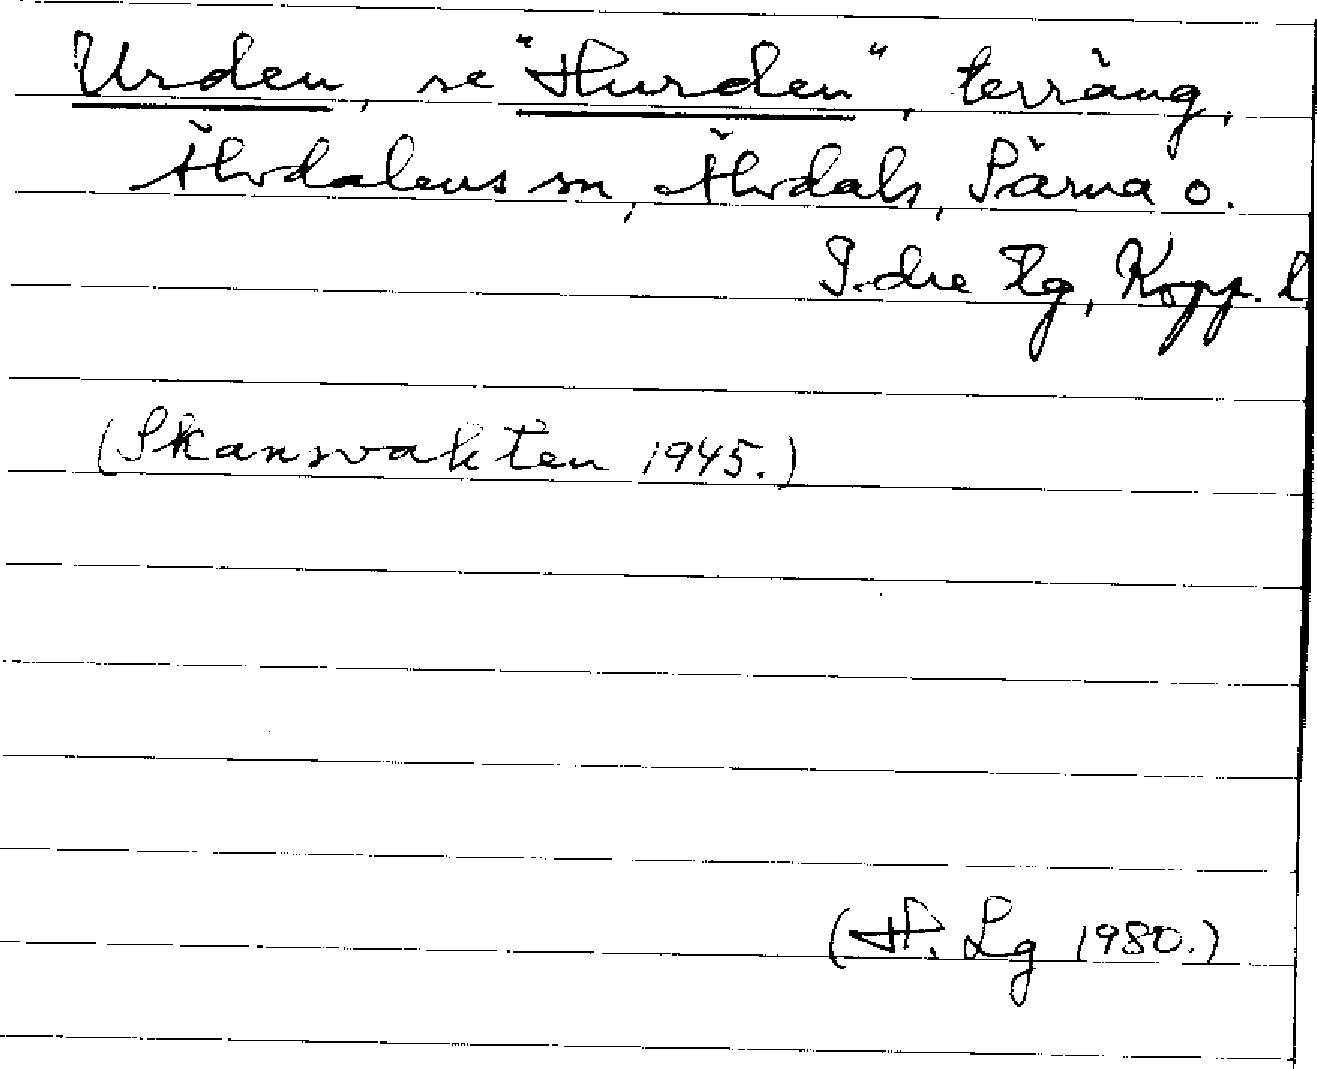 Urden, se "Hurden", terräng,
Älvdalens sn, Älvdals, Särna o.
Idre tg, Kopp. l
(Skansvakten 1945.)
(H. Lg 1980.)